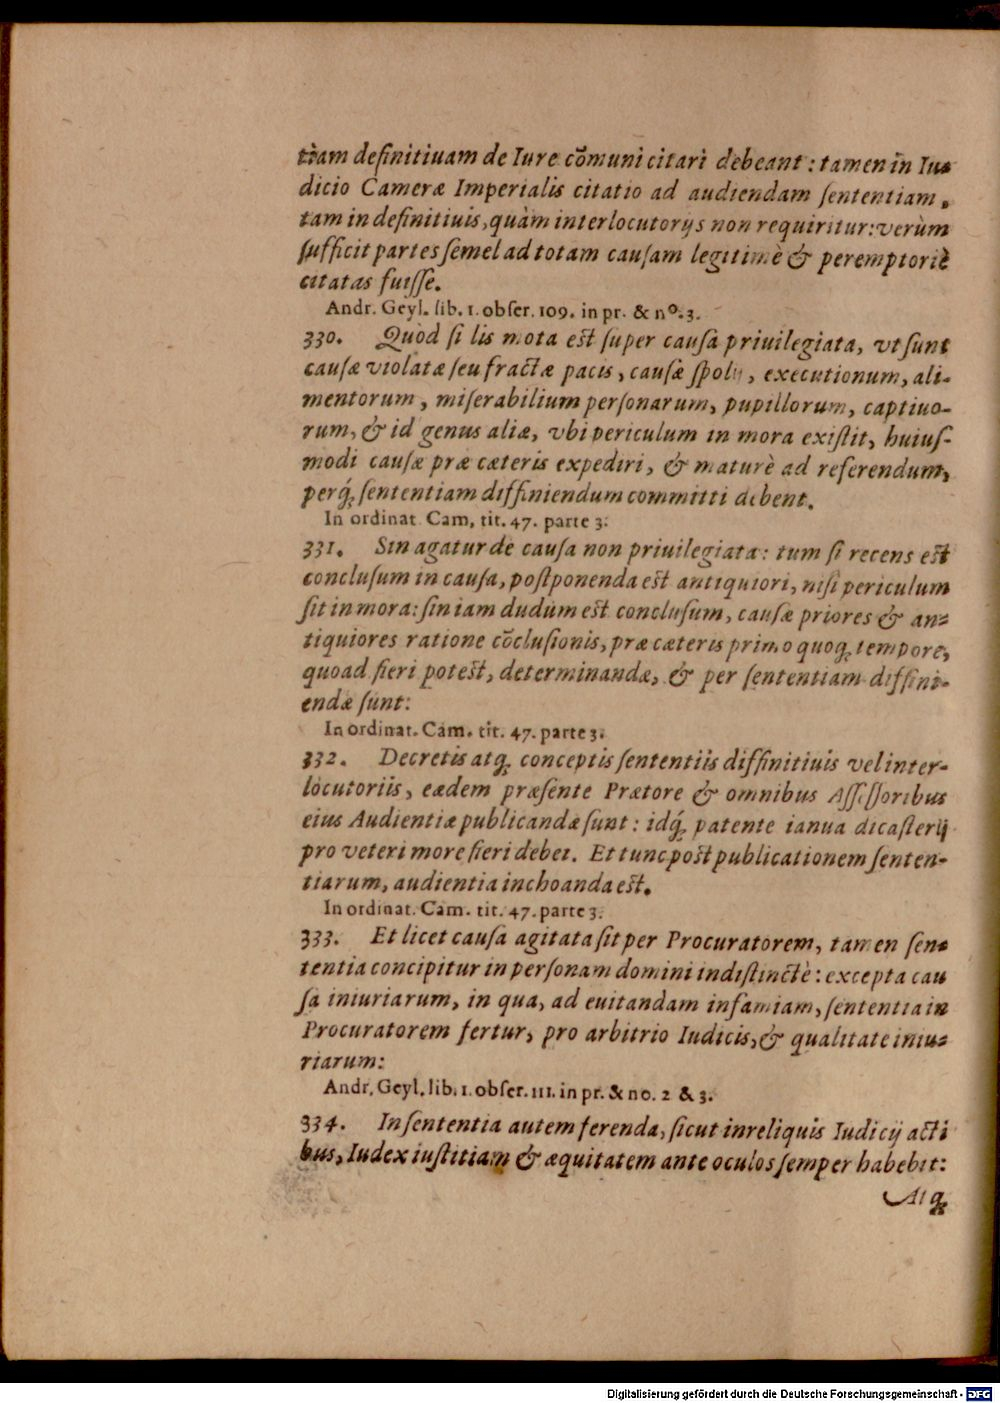 tiam definitiuam de Iure cõmuni citari debeant : tamen in Iu-
dicio Cameræ Imperialis citatio ad audiendam ſententiam,
tam in definitiuis, quàm interlocutorijs non requiritur: verùm
ſufficit partes ſemel ad totam cauſam legitimè & peremptoriè
citatas fuiſſe.
Andr. Geyl. lib. 1. obſer. 109. in pr. & nº. 3.
330. Quòd ſi lis mota eſt ſuper cauſa priuilegiata, vt ſunt
cauſæ violatæ ſeu fractæ pacis, cauſæ ſpolij, executionum, ali-
mentorum, miſerabilium perſonarum, pupillorum, captiuo-
rum, & id genus aliæ, vbi periculum in mora exiſtit, huiuſ-
modi cauſæ præ cæteris expediri, & maturè ad referendum,
perq́; ſententiam diffiniendum committi debent.
In ordinat. Cam, tit. 47. parte 3.
331. Sin agatur de cauſa non priuilegiata: tum ſi recens eſt
concluſum in cauſa, poſtponenda eſt antiquiori, niſi periculum
ſit in mora: ſin iam dudum eſt concluſum, cauſæ priores & an-
tiquiores ratione cõcluſionis, præ cæteris primo quoq; tempore,
quoad fieri poteſt, determinandæ, & per ſententiam diffini-
endæ ſunt:
In ordinat. Cam. tit. 47. parte 3.
332. Decretis atq; conceptis ſententiis diffinitiuis vel inter-
locutoriis, eædem præſente Prætore & omnibus Aſſeſſoribus
eius Audientiæ publicandæ ſunt : idq́; patente ianua dicaſterij
pro veteri more fieri debet. Et tunc poſt publicationem ſenten-
tiarum, audientia inchoanda eſt.
In ordinat. Cam. tit. 47. parte 3.
333. Et licet cauſa agitata ſit per Procuratorem, tamen ſen-
tentia concipitur in perſonam domini indiſtinctè: excepta cau
ſa iniuriarum, in qua, ad euitandam infamiam, ſententia in
Procuratorem fertur, pro arbitrio Iudicis, & qualitate iniu-
riarum:
Andr. Geyl. lib. 1. obſer. 111. in pr. & no. 2 & 3.
334. In ſententia autem ferenda, ſicut in reliquis Iudicij acti
bus, Iudex iuſtitiam & æquitatem ante oculos ſemper habebit:
Atq;
Digitalisierung gefördert durch die Deutsche Forschungsgemeinschaft - DFG